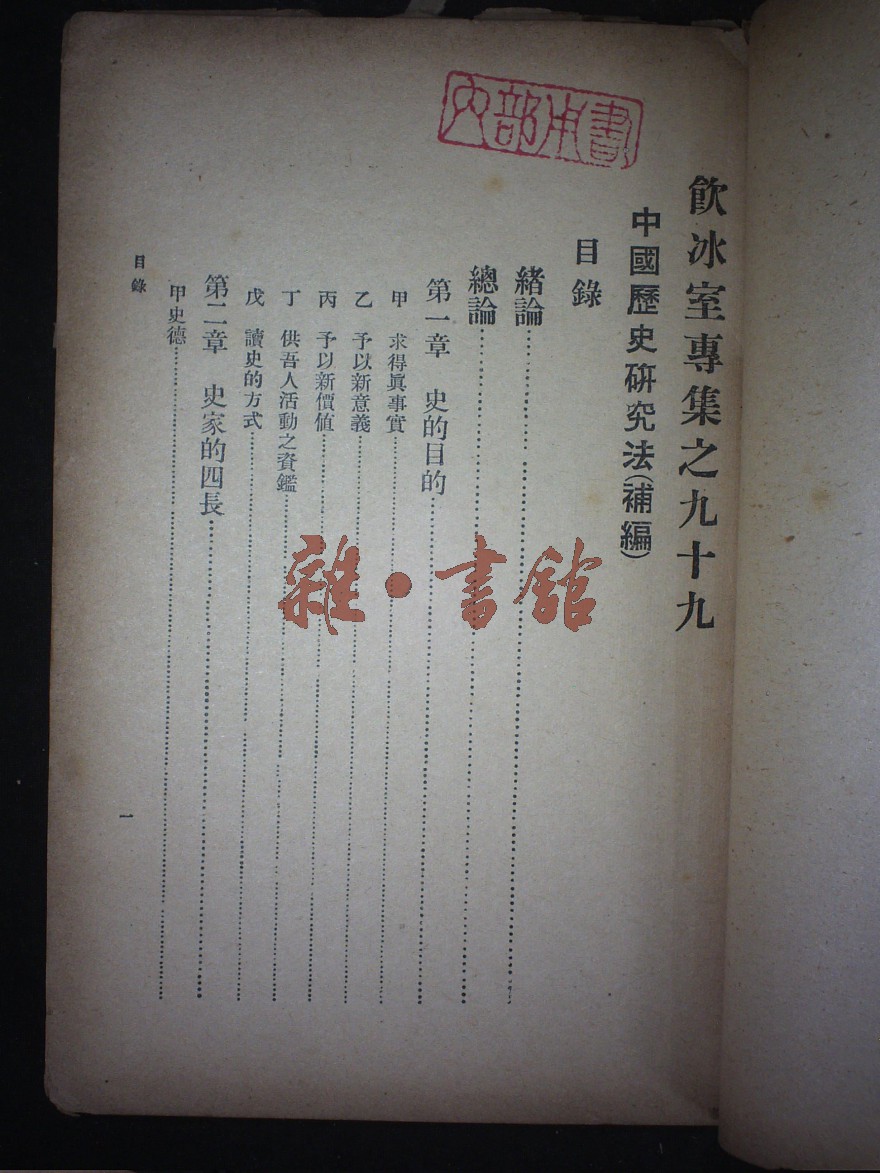 內部用書
飲冰室專集之九十九
中國歷史研究法(補編)
目錄
緒論
總論
第一章 史的目的
甲 求得眞事實
乙 予以新意義
丙 予以新價値
丁 供吾人活動之資鑑
戊 讀史的方式
第二章 史家的四長
甲史德
目錄
一
雜·書館